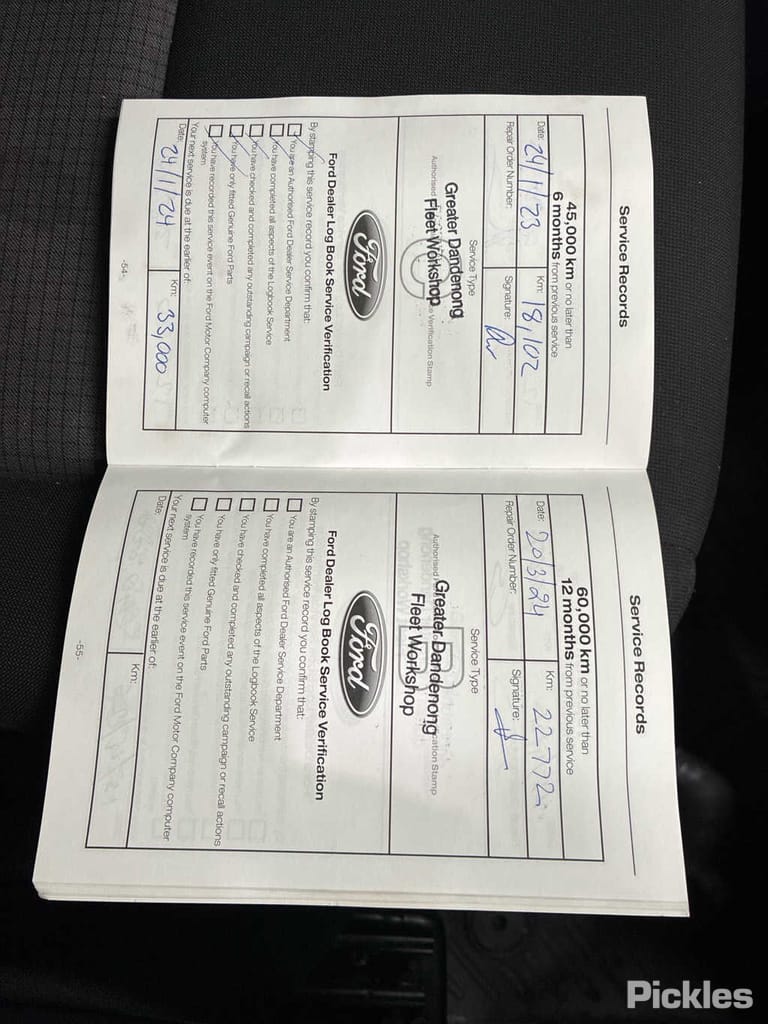 Service Records
45,000 km or no later than
6 months from previous service
Date: 24/1/23 Km: 18,102
Repair Order Number: Signature:
Service Type
C
Greater Dandenong
Fleet Workshop
Authorised Verification Stamp
Ford
Ford Dealer Log Book Service Verification
By stamping this service record you confirm that:
You are an Authorised Ford Dealer Service Department
You have completed all aspects of the Logbook Service
You have checked and completed any outstanding campaign or recall actions
You have only fitted Genuine Ford Parts
You have recorded this service event on the Ford Motor Company computer
system
Your next service is due at the earlier of:
Date: 24/1/24 Km: 33,000
-54-
Service Records
60,000 km or no later than
12 months from previous service
Date: 20/3/24 Km: 22772
Repair Order Number: Signature:
Service Type
B
Authorised
Greater Dandenong
Fleet Workshop
Stamp
Ford
Ford Dealer Log Book Service Verification
By stamping this service record you confirm that:
You are an Authorised Ford Dealer Service Department
You have completed all aspects of the Logbook Service
You have checked and completed any outstanding campaign or recall actions
You have only fitted Genuine Ford Parts
You have recorded this service event on the Ford Motor Company computer
system
Your next service is due at the earlier of:
Date: Km:
-55-
Pickles